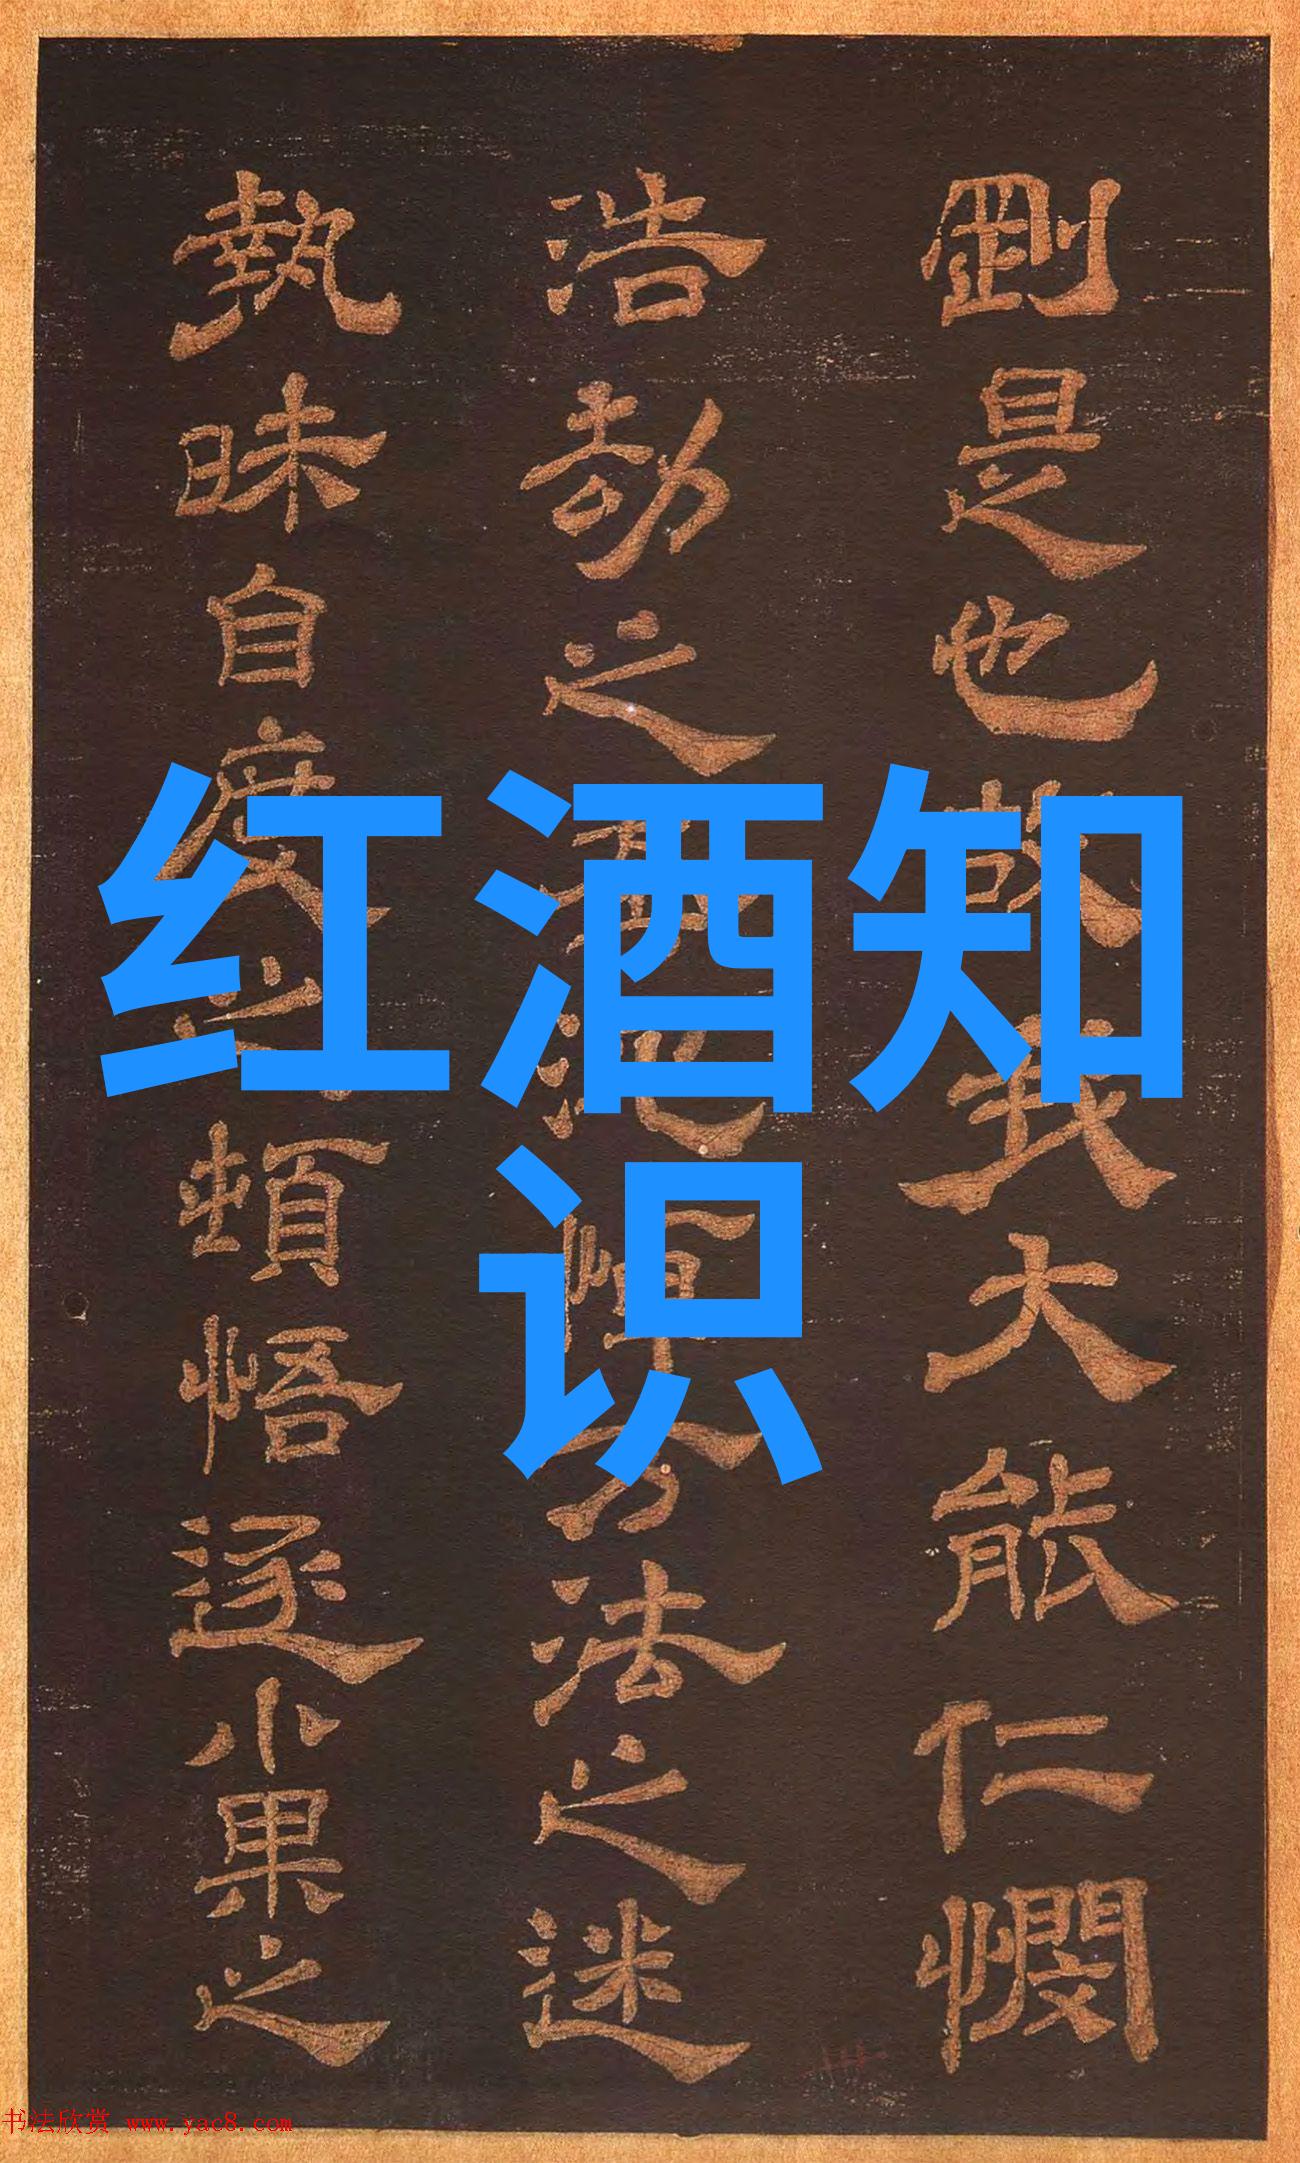 剛是也故我大能仁憫
浩劫之法之迷
執昧自度頓悟遂小果之
红酒知
识
书法欣赏 www.yac8.com